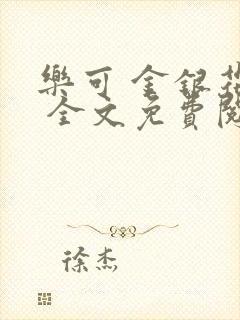 樂可 金銀花
全文免費閱
徐杰